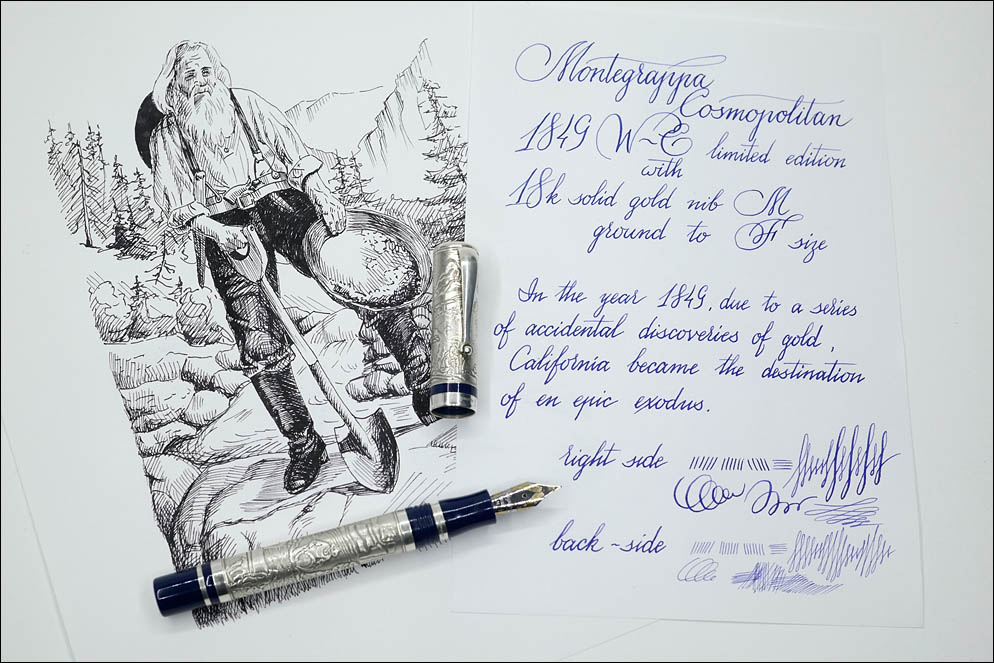 Montegrappa
Cosmopolitan
1849 W~E limited edition
with
18k solid gold nib M
ground to F size
In the year 1849, due to a series
of accidental discoveries of gold,
California became the destination
of en epic exodus.
right side
back ~side